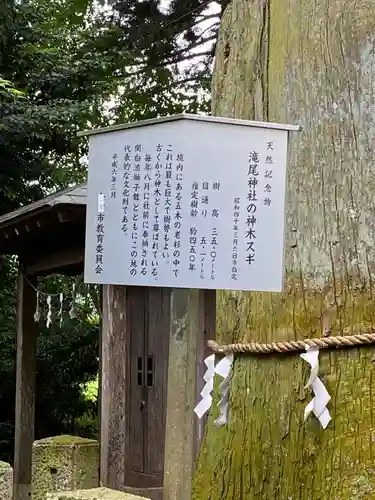 天然記念物
滝尾神社の神木スギ
昭和四十年三月六日市指定
樹高 三五・〇メートル
目通り 五・一メートル
推定樹齢 約四五〇年
境内にある五木の老杉の中で
これは最も巨大で樹勢もよい。
古くから神木として崇められ
毎年八月に社前に奉納される
関白流獅子舞とともにこの地の
代表的な文化財である。
平成六年三月
市教育委員会